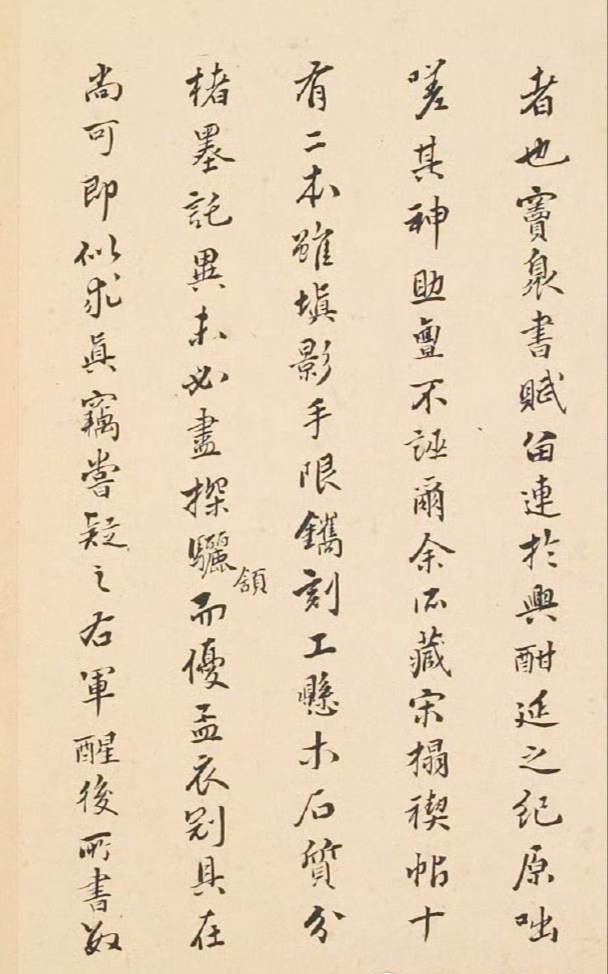 者也竇臮書賦留連於興酣延之紀原咄
嗟其神助亶不誣爾余所藏宋搨禊帖十
有二本雖塡影手限鐫刻工懸木石質分
楮墨託異未必盡探驪頷而優孟衣冠具在
尚可即似求眞竊嘗疑之右軍醒後所書數